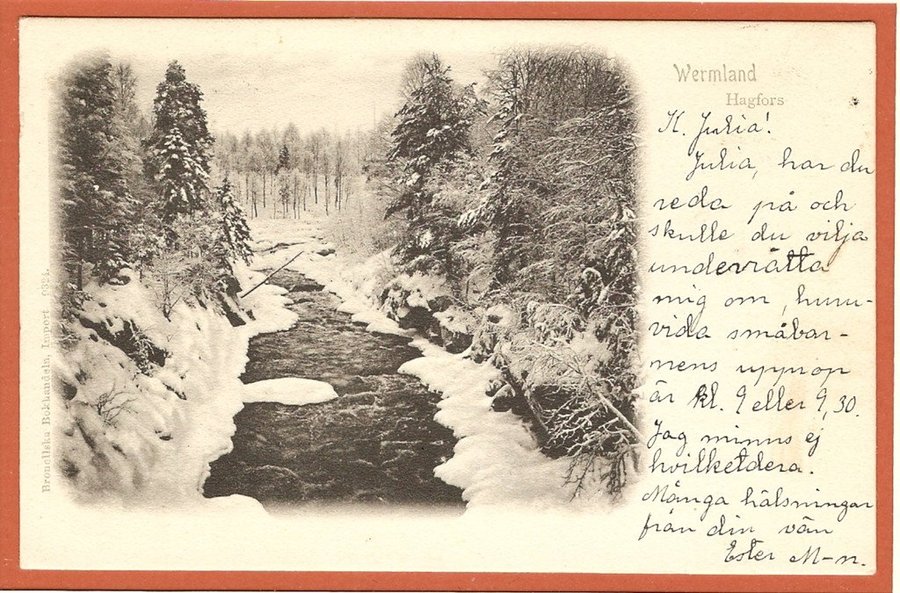 Wermland
Hagfors
K. Julia!
Julia, har du
reda på och
skulle du vilja
underrätta
mig om, huru-
vida småbar-
nens upprop
är kl. 9 eller 9,30.
Jag minns ej
hvilketdera.
Många hälsningar
från din vän
Ester M-n.
Bronellska Bokhandeln, Import